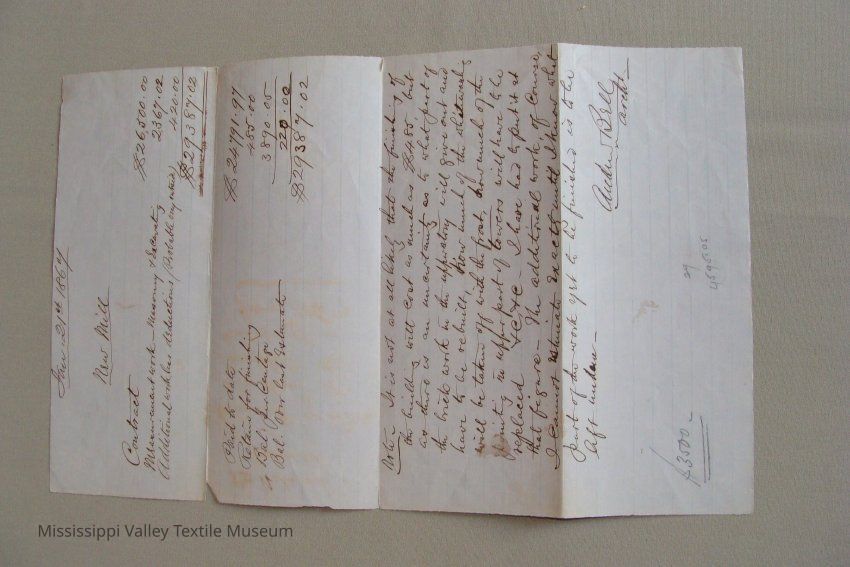 Jany 21st 1867
New Mill
Contract $26,600.00
Measurement work - Masonry & Excavating 2367.02
Additional work less deductions (Probable say rated) 420.00
$29387.02
Paid to date $24791.97
Retain for finishing 485.00
" Bal. Percentage 3890.05
Bal. Our last Estimate 220.02
$29387.02
Note. It is not at all likely that the finishing of
the building will cost as much as $485. but
as there is an uncertainty as to what part of
the brick work in the upper story will give out and
have to be rebuilt, how much of the whitewashing
will be taken off with the frost, how much of the
pointing in upper part of towers will have to be
replaced &c &c - I have had to put it at
that figure - The additional work of course
I cannot estimate exactly until I know what
part of the work yet to be finished is to be
left undone -
Andw Bell
Archt
27
4595.05
$3500 -
Mississippi Valley Textile Museum